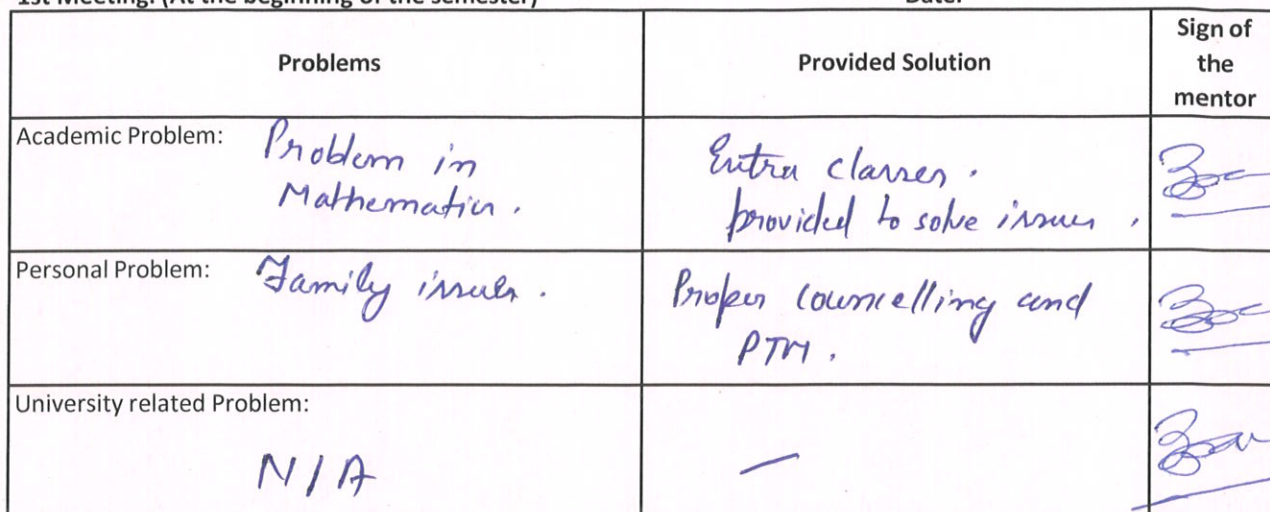 1st Meeting: (At the beginning of the semester) Date:
Problems Provided Solution Sign of the mentor
Academic Problem: Problem in Mathematics. Extra classes. provided to solve issues.
Personal Problem: Family issues. Proper councelling and PTM.
University related Problem: N/A —